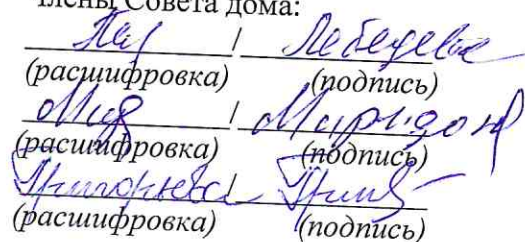 Члены Совета дома:
/ Лебедева
(расшифровка) (подпись)
/
(расшифровка) (подпись)
Григорьева /
(расшифровка) (подпись)